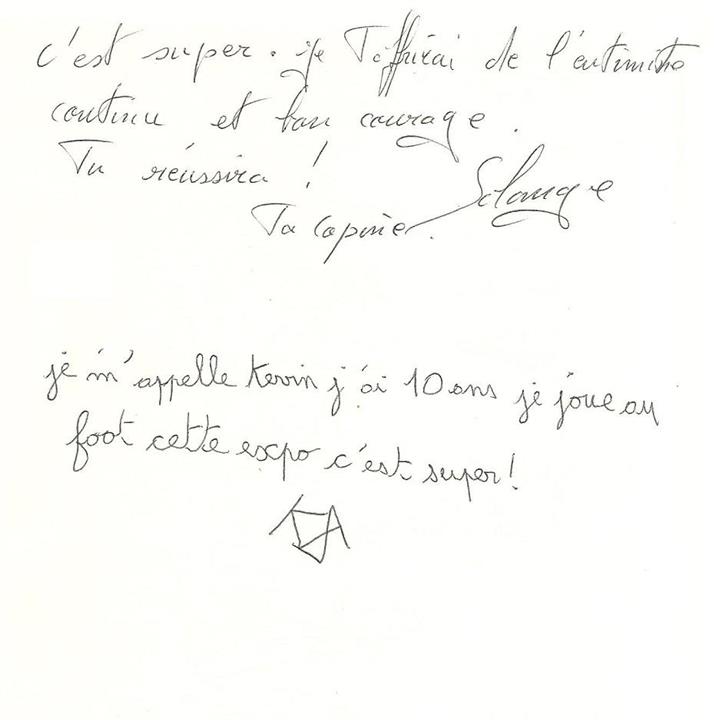 c'est super. je T'offrirai de l'entimitré
continu et bon courage.
Tu réussira !
Ta copine. Solange
je m'appelle Kevin j'ai 10 ans je joue au
foot cette expo c'est super!